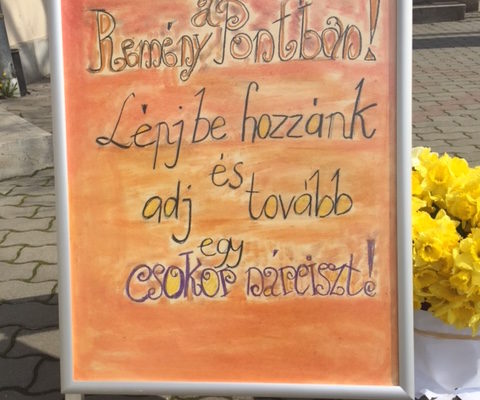 a
Remény Pontban!
Lépj be hozzánk
és
adj tovább
egy
csokor nárciszt!